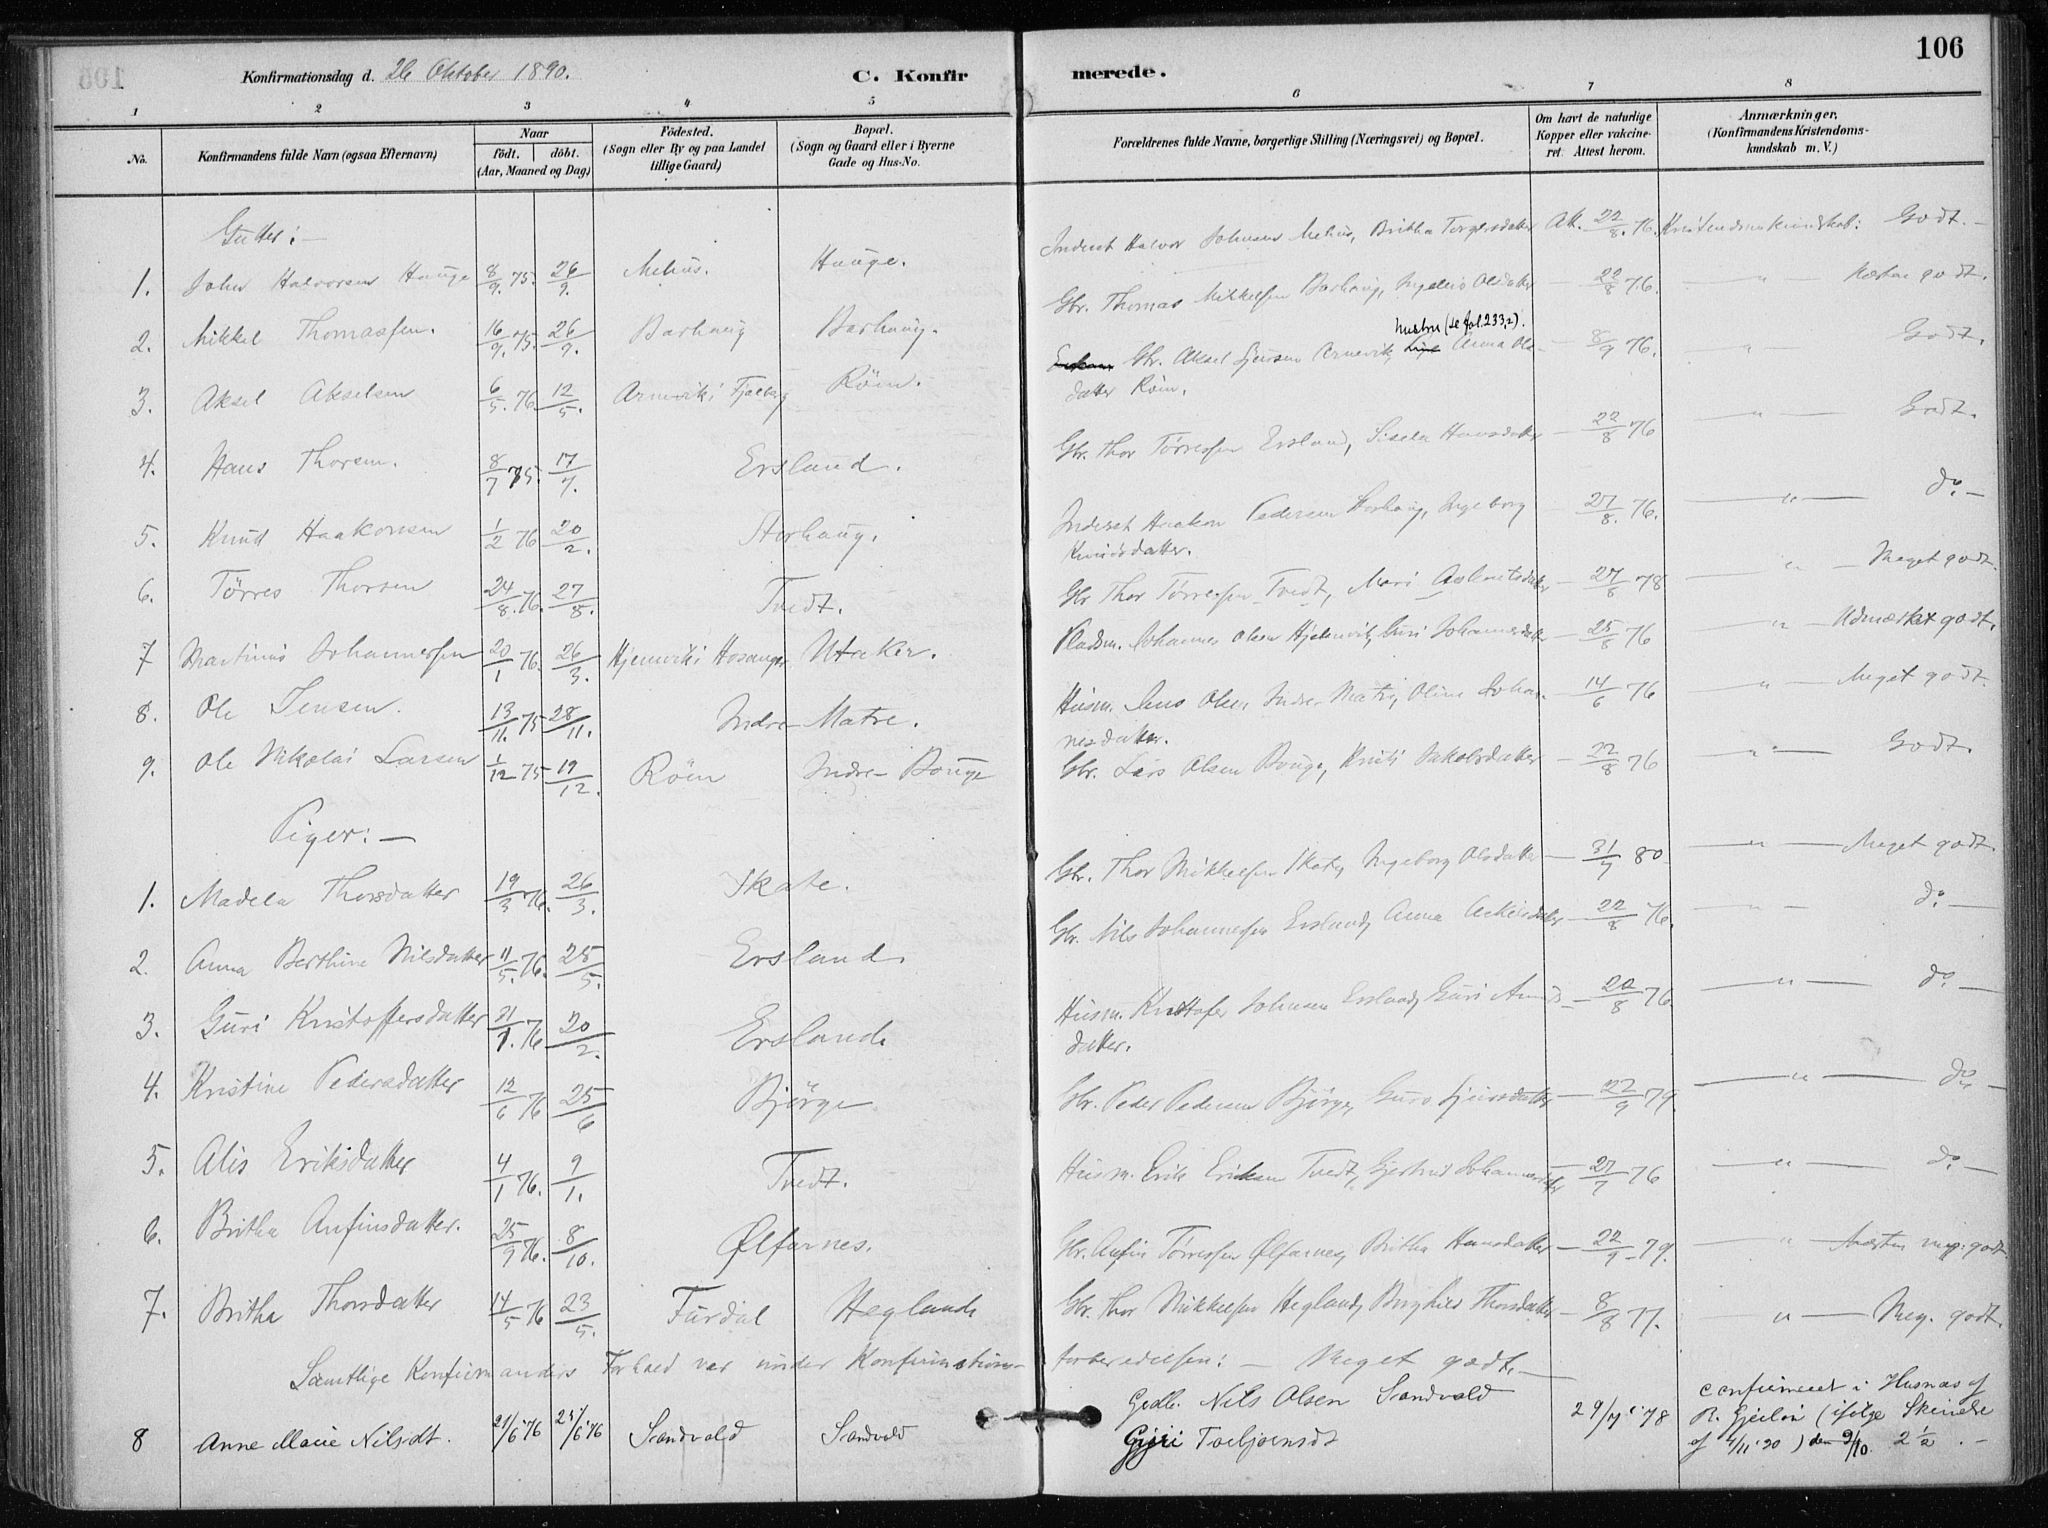 106
Konfirmationsdag d. 26 Oktober 1890. C. Konfirmerede.
1 2 3 4 5 6 7 8
No. Konfirmandens fulde Navn (ogsaa Efternavn) Naar födt. döbt. (Aar, Maaned og Dag) Födested. (Sogn eller By og paa Landet tillige Gaard) Bopæl. (Sogn og Gaard eller i Byerne Gade og Hus-No. Forældrenes fulde Navne, borgerlige Stilling (Næringsvei) og Bopæl. Om havt de naturlige Kopper eller vakcineret. Attest herom. Anmærkninger, (Konfirmandens Kristendomskundskab m. V.)
Gutter: —
1. John Halvorsen Hauge 8/9. 75. 26/9. Mehus. Hauge. Inderst Halvor Johnsen Mehus, Britha Torgersdatter Att. 22/8. 76. Kristendomskundskab: Godt. —
2. Mikkel Thomassen. 16/9. 75. 26/9. Barhaug Barhaug. Gbr. Thomas Mikkelsen Barhaug, Olsdatter — 22/8 76. " Næsten godt.
hustru (se fol. 233,2).
3. Aksel Akselsen 6/5. 76. 12/5. Arnevik i Fjelberg Röm. Gbr. Aksel Sjursen Arnevik, Anna Ols- — 8/9 76. " Godt.
datter Röm.
4. Hans Thorsen. 8/7 75. 17/7. Ersland. Gbr. Thor Tørressen Ersland, Sisela Hansdatter — 22/8 76 — " — Godt.
5. Knud Haakonsen 1/2 76 20/2. Storhaug. Inderst Haakon Pedersen Storhaug, Ingeborg — 27/8. 76. — " — do. —
Knudsdatter.
6. Tørres Thorsen 24/8. 76. 27/8. Tvedt. Gbr Thor Tørressen Tvedt, Mari Aslaksdatter — 27/8 78 — " — Meget godt.
7 Martinus Johannessen 20/1 76. 26/3. Hjelmvik i Hosanger Utaker. Pladsm. Johannes Olsen Hjelmvik, Guri Johannesdatter — 25/8 76 " — Udmærket godt.
8. Ole Jensen. 13/11. 75 28/11. Indre Matre. Husm. Jens Olsen Indre Matre, Oline Johan- — 14/6 76 — " — Meget godt.
nesdatter.
9. Ole Nikolai Larsen 1/12 75 19/12. Röm Indre- Bouge Gbr. Lars Olsen Bouge, Kristi Jakobsdatter — 22/8 76 " — Godt.
Piger: —
1. Madela Thorsdatter 19/3 76. 26/3. Skate. Gbr. Thor Mikkelsen Skate, Ingeborg Olsdatter — 31/7 80 — " — Meget godt.
2. Anna Berthine Nilsdatter 11/5. 76. 28/5. Ersland. Gbr. Nils Johannessen Ersland, Anna — 22/8 76. — " — do. —
3. Guri Kristoffersdatter 31/1. 76 20/2. Ersland. Husm. Kristofer Johnsen Ersland, Guri — 22/8 76 — " — do. —
datter.
4. Kristine Pedersdatter 12/6 76 25/6 Bjørge Gbr. Peder Pedersen Bjørge, Guro Sjursdatter — 22/9 79. — " — do. —
5. Alis Eriksdatter 4/1 76. 9/1. Tvedt. Husm. Erik Eriksen Tvedt, Gjertrud Johannesdatter — 27/7 76 — " — do. —
6. Britha Anfinsdatter. 25/9 76. 8/10. Ølfarnes. Gbr. Anfin Tørressen Ølfarnes, Britha Hansdatter — 22/9 — 79. — " — Næsten meg. godt
7. Britha Thorsdatter 14/5 76 23/5. Furdal Hegland Gbr. Thor Mikkelsen Hegland, Thorsdatter — 8/8 77. — " — Meg. godt.
Samtlige Konfirmanders Forhold var under Konfirmations-
forberedelsen: — Meget godt. —
8 Anne Marie Nilsdt. 21/6 '76 25/6 '76 Sandvold Sandvold Gdb. Nils Olsen Sandvold 29/7 '78 confirmeret i Husnæs af
Gjøri Torbjørnsdt R. Gjerløv (ifølge Skrivelse
af 4/11 '90) den 9/10. 2 ½ . —